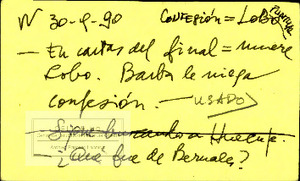 W 30-9-90 CONFESIÓN = LOBO
PUNTUAL
— En cartas del final = muere
Lobo. Barba le niega
confesión. — USADO
a Huerta.
— ¿Qué fue de Bernales?